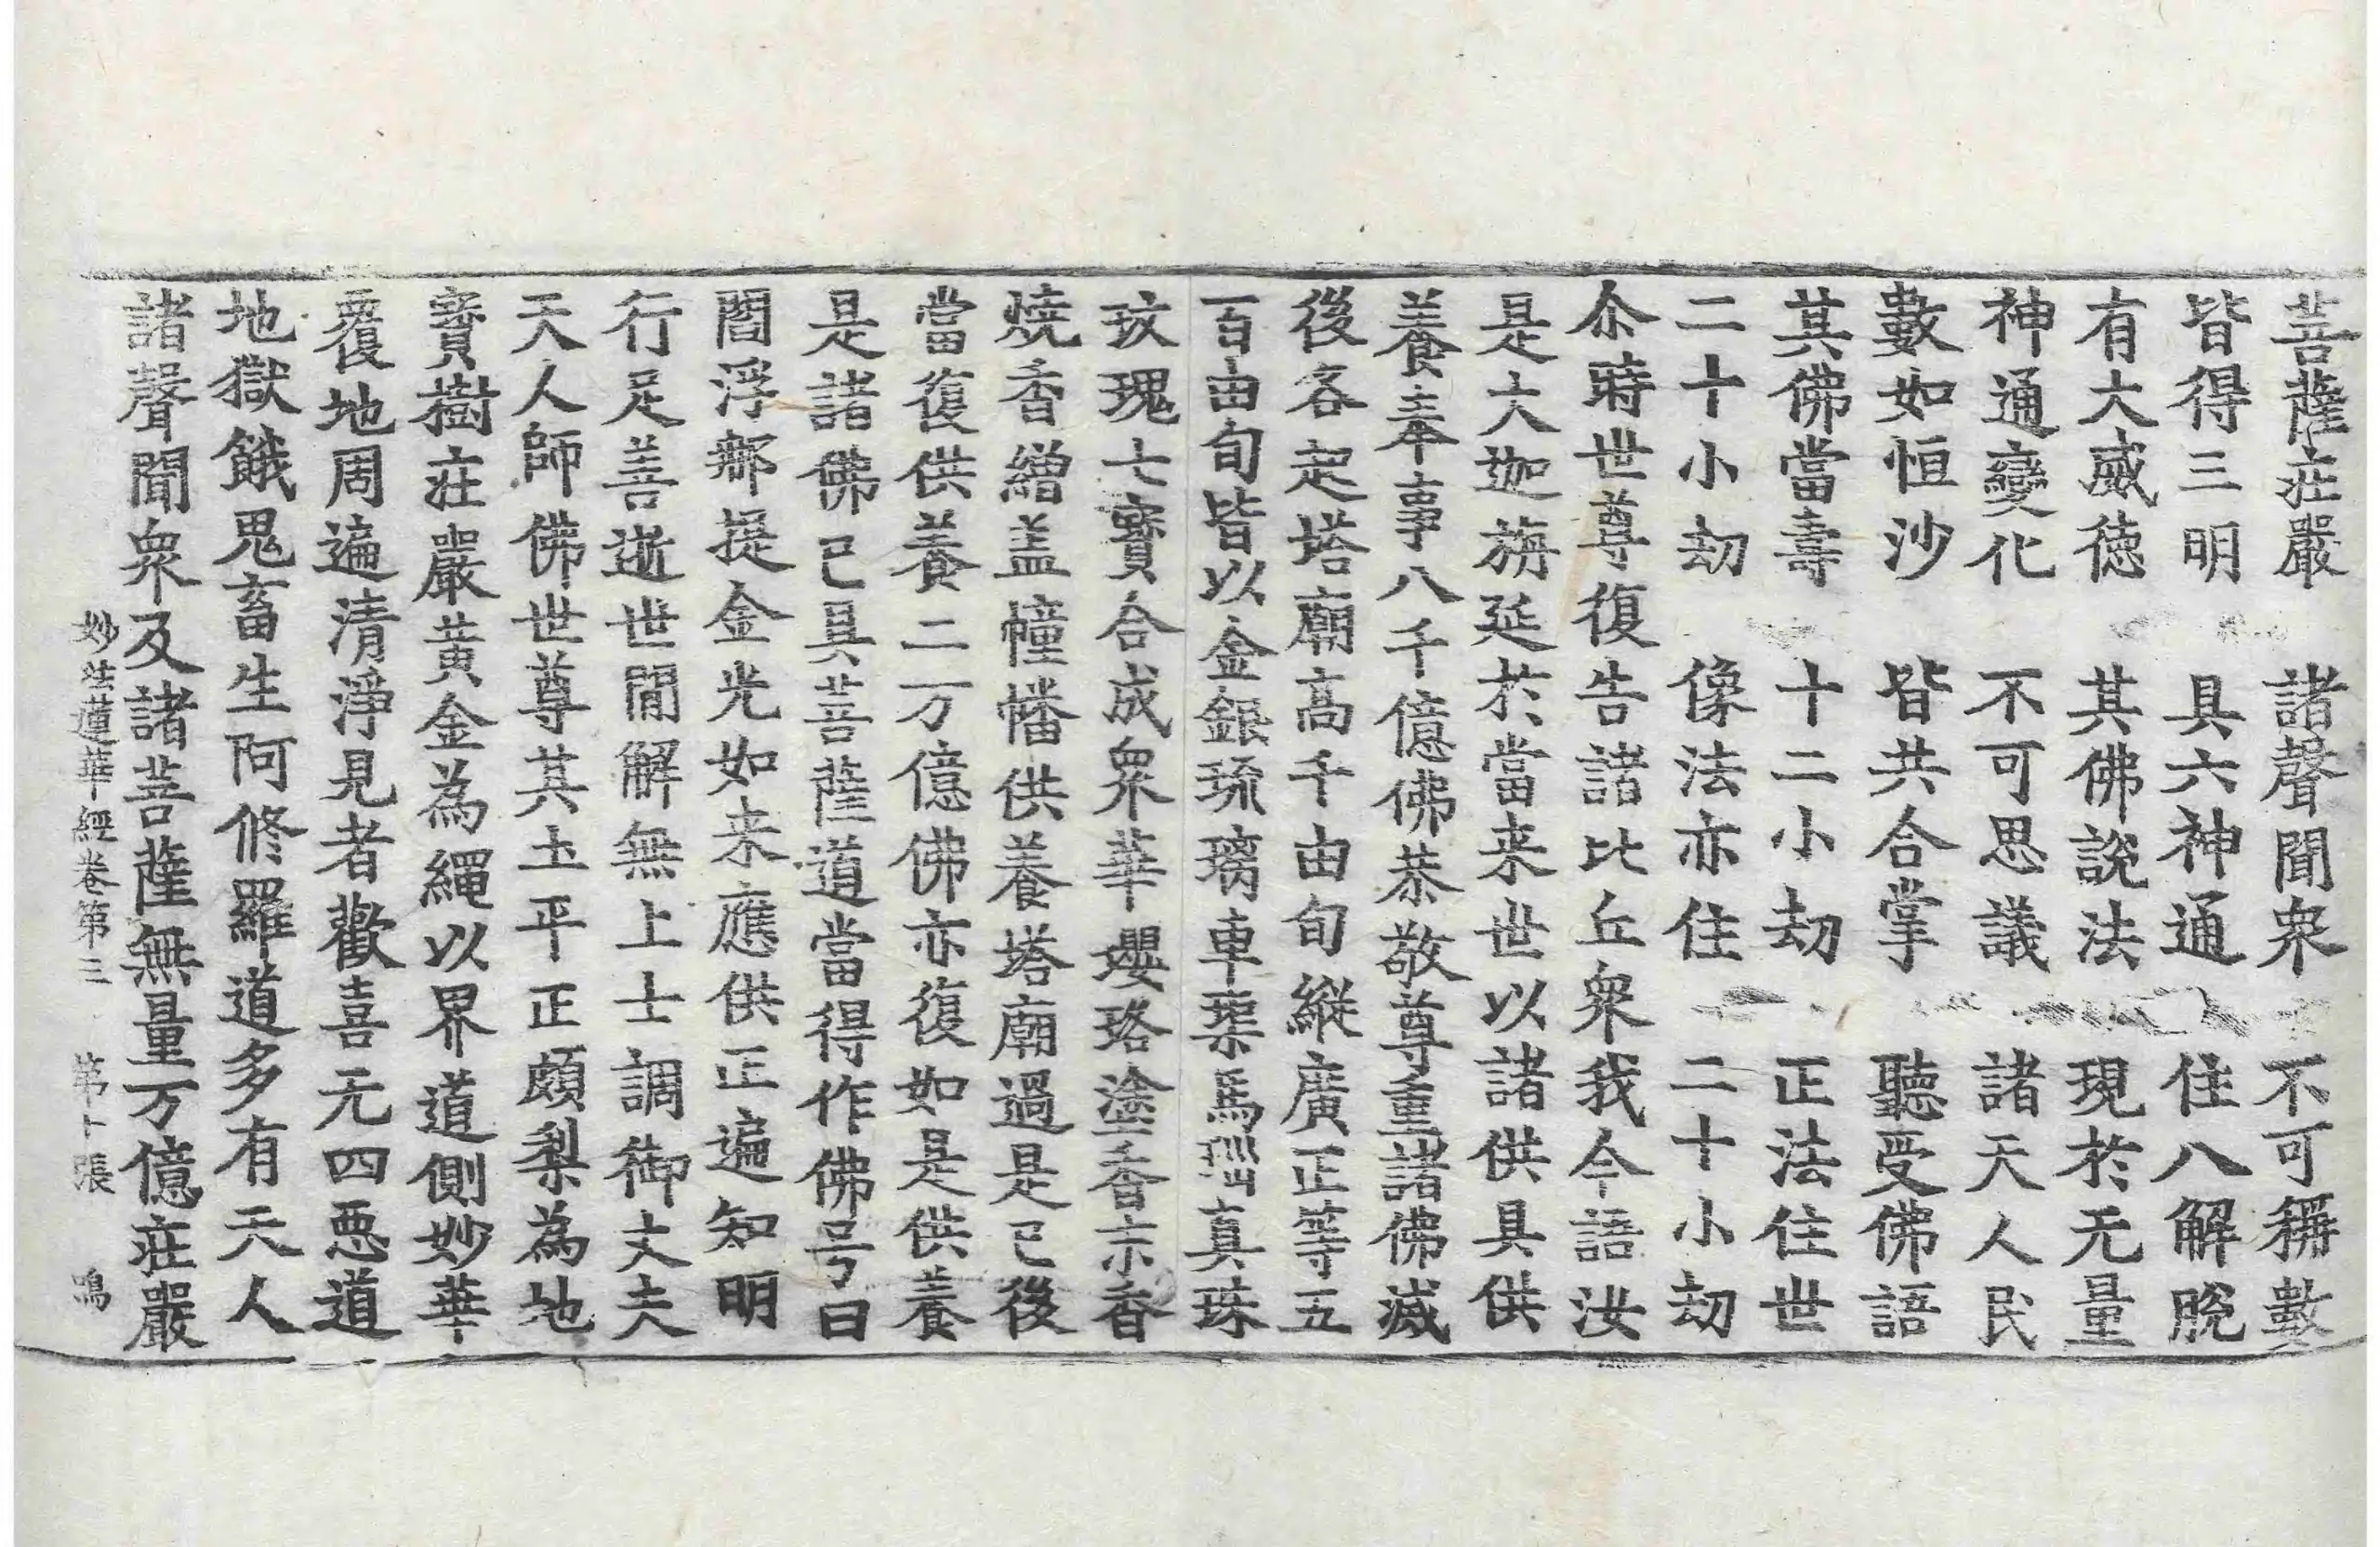 菩薩莊嚴　諸聲聞衆　不可稱數
皆得三明　具六神通　住八解脫
有大威德　其佛說法　現於无量
神通變化　不可思議　諸天人民
數如恒沙　皆共合掌　聽受佛語
其佛當壽　十二小劫　正法住世
二十小劫　像法亦住　二十小劫
尒時世尊復告諸比丘衆我今語汝
是大迦旃延於當来世以諸供具供
養奉事八千億佛恭敬尊重諸佛滅
後各起塔廟高千由旬縱廣正等五
百由旬皆以金銀琉璃車璖馬瑙真珠
玫瑰七寶合成衆華瓔珞塗香末香
燒香繒盖幢幡供養塔廟過是已後
當復供養二万億佛亦復如是供養
是諸佛已具菩薩道當得作佛号曰
閻浮那提金光如来應供正遍知明
行足善逝世間解無上士調御丈夫
天人師佛世尊其土平正頗梨為地
寶樹莊嚴黃金為繩以界道側妙華
覆地周遍清淨見者歡喜无四惡道
地獄餓鬼畜生阿修羅道多有天人
諸聲聞衆及諸菩薩無量万億莊嚴
妙法蓮華經卷第三　第十張　鳴